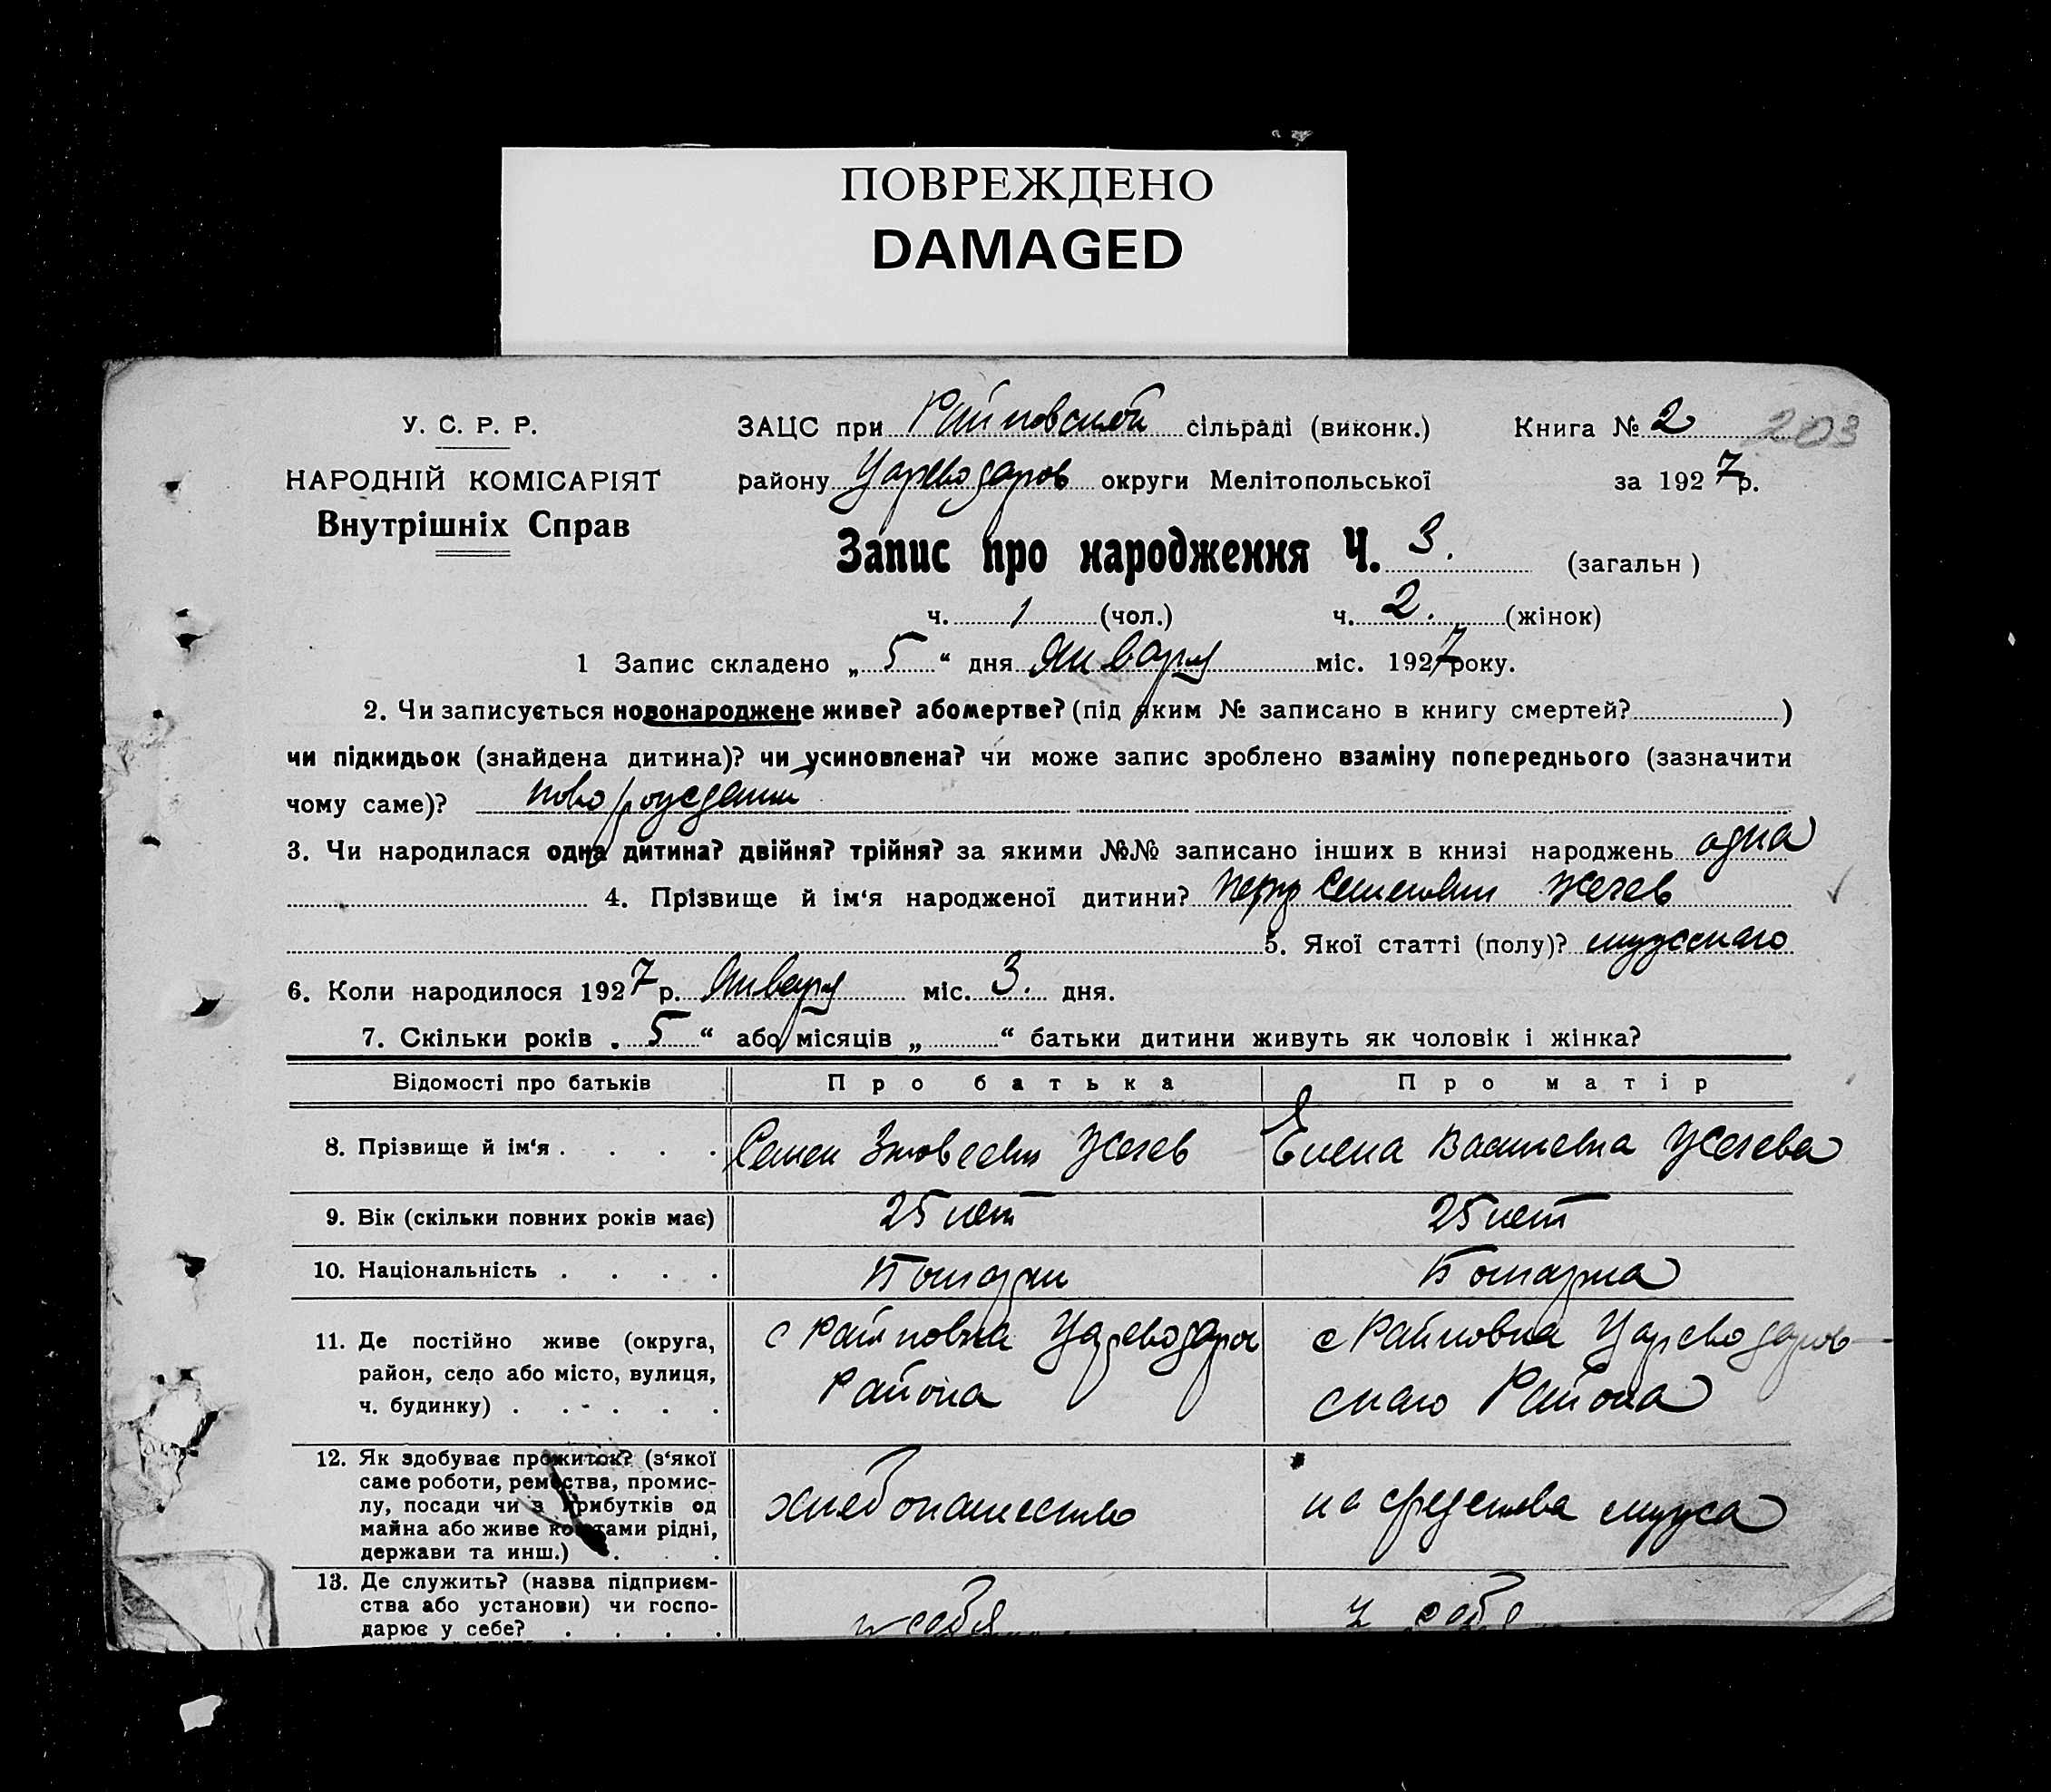 ПОВРЕЖДЕНО
DAMAGED
У. С. Р. Р.
НАРОДНІЙ КОМІСАРІЯТ
Внутрішніх Справ
ЗАЦС при Райновской сільраді (виконк.) Книга № 2 203
району Цареводаров округи Мелітопольської за 1927 р.
Запис про народження Ч. 3. (загальн)
ч. 1 (чол.) ч. 2. (жінок)
1 Запис складено „ 5 “ дня Января міс. 1927 року.
2. Чи записується новонароджене живе? або мертве? (під яким № записано в книгу смертей? )
чи підкидьок (знайдена дитина)? чи усиновлена? чи може запис зроблено взаміну попереднього (зазначити
чому саме)?
3. Чи народилася одна дитина? двійня? трійня? за якими №№ записано інших в книзі народжень одна
4. Прізвище й ім‘я народженої дитини? Петр Семенович Жечев
5. Якої статті (полу)? мужскаго
6. Коли народилося 1927 р. Января міс. 3. дня.
7. Скільки років „ 5 “ або місяців „ “ батьки дитини живуть як чоловік і жінка?
Відомості про батьків Про батька Про матір
8. Прізвище й ім‘я . . . . Семен Жечев Елена Васильевна Жечева
9. Вік (скільки повних років має) 25 лет 25 лет
10. Національність . . . . Болгарин Болгарка
11. Де постійно живе (округа, с Райновка Цареводаров с Райновка Цареводаров-
район, село або місто, вулиця, Района скаго Района
ч. будинку) . . . . .
12. Як здобуває прожиток? (з‘якої
саме роботи, ремества, промис-
лу, посади чи з прибутків од хлебопашество на средства мужа
майна або живе коштами рідні,
держави та инш.) . .
13. Де служить? (назва підприєм-
ства або установи) чи госпо- у себя у себя
дарює у себе? . . . .